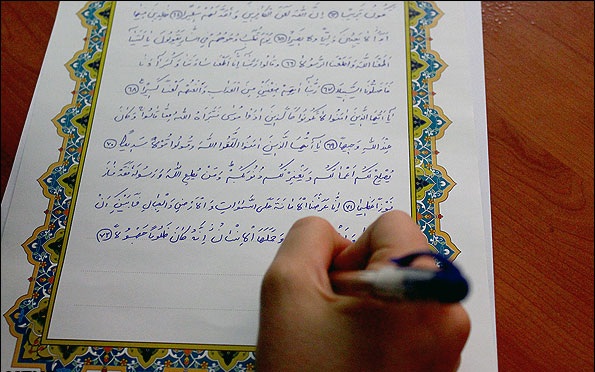 تكون قريبا ﴿٦٣﴾ إن الله لعن الكافرين وأعد لهم سعيرا ﴿٦٤﴾ خالدين فيها
أبدا لا يجدون وليا ولا نصيرا ﴿٦٥﴾ يوم تقلب وجوههم في النار يقولون يا ليتنا
أطعنا الله وأطعنا الرسولا ﴿٦٦﴾ وقالوا ربنا إنا أطعنا سادتنا وكبراءنا
فأضلونا السبيلا ﴿٦٧﴾ ربنا آتهم ضعفين من العذاب والعنهم لعنا كبيرا ﴿٦٨﴾
يا أيها الذين آمنوا لا تكونوا كالذين آذوا موسى فبرأه الله مما قالوا وكان
عند الله وجيها ﴿٦٩﴾ يا أيها الذين آمنوا اتقوا الله وقولوا قولا سديدا ﴿٧٠﴾
يصلح لكم أعمالكم ويغفر لكم ذنوبكم ومن يطع الله ورسوله فقد فاز
فوزا عظيما ﴿٧١﴾ إنا عرضنا الأمانة على السموات والأرض والجبال فأبين أن
وحملها الإنسان إنه كان ظلوما جهولا ﴿٧٢﴾